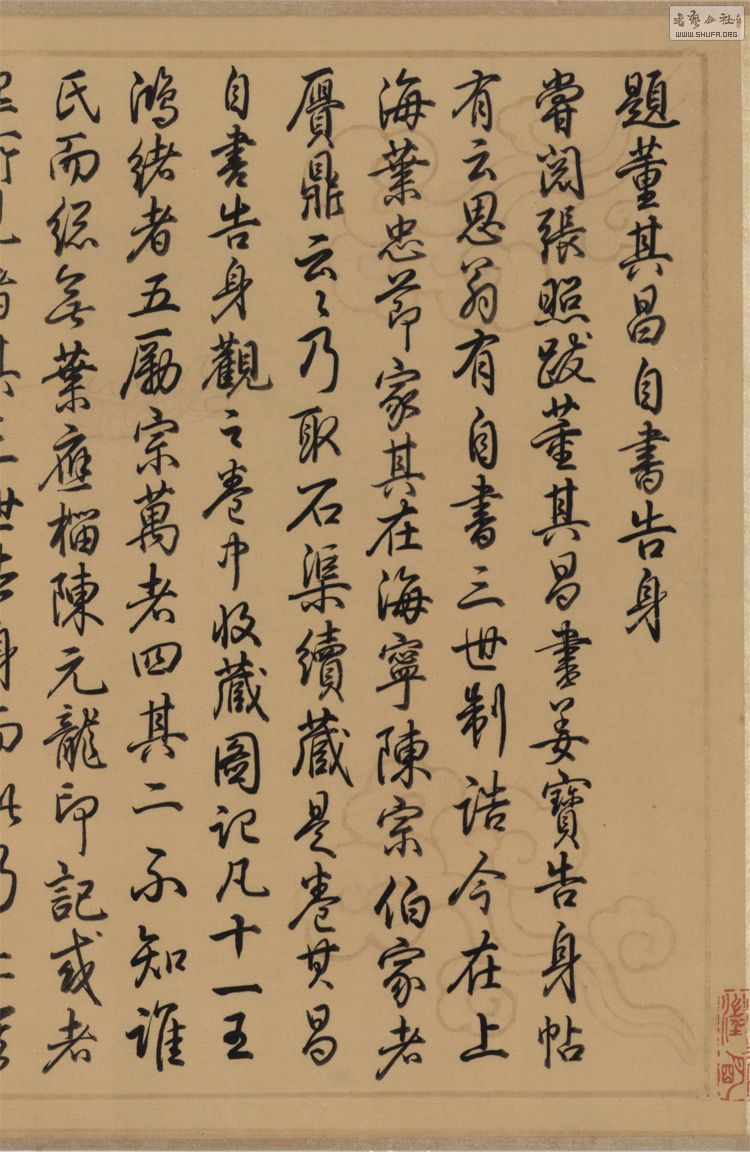 題董其昌自書告身
嘗閱張照跋董其昌書姜寶告身帖
有云思翁有自書三世制誥今在上
海葉忠節家其在海寧陳宗伯家者
贋鼎云〻乃取石渠續藏是卷其昌
自書告身觀之卷中收藏圖記凡十一王
鴻緒者五勵宗萬者四其二不知誰
氏而總無葉應榴陳元龍印記或者
其三世告身而此乃
書藝公社
WWW.SHUFA.ORG